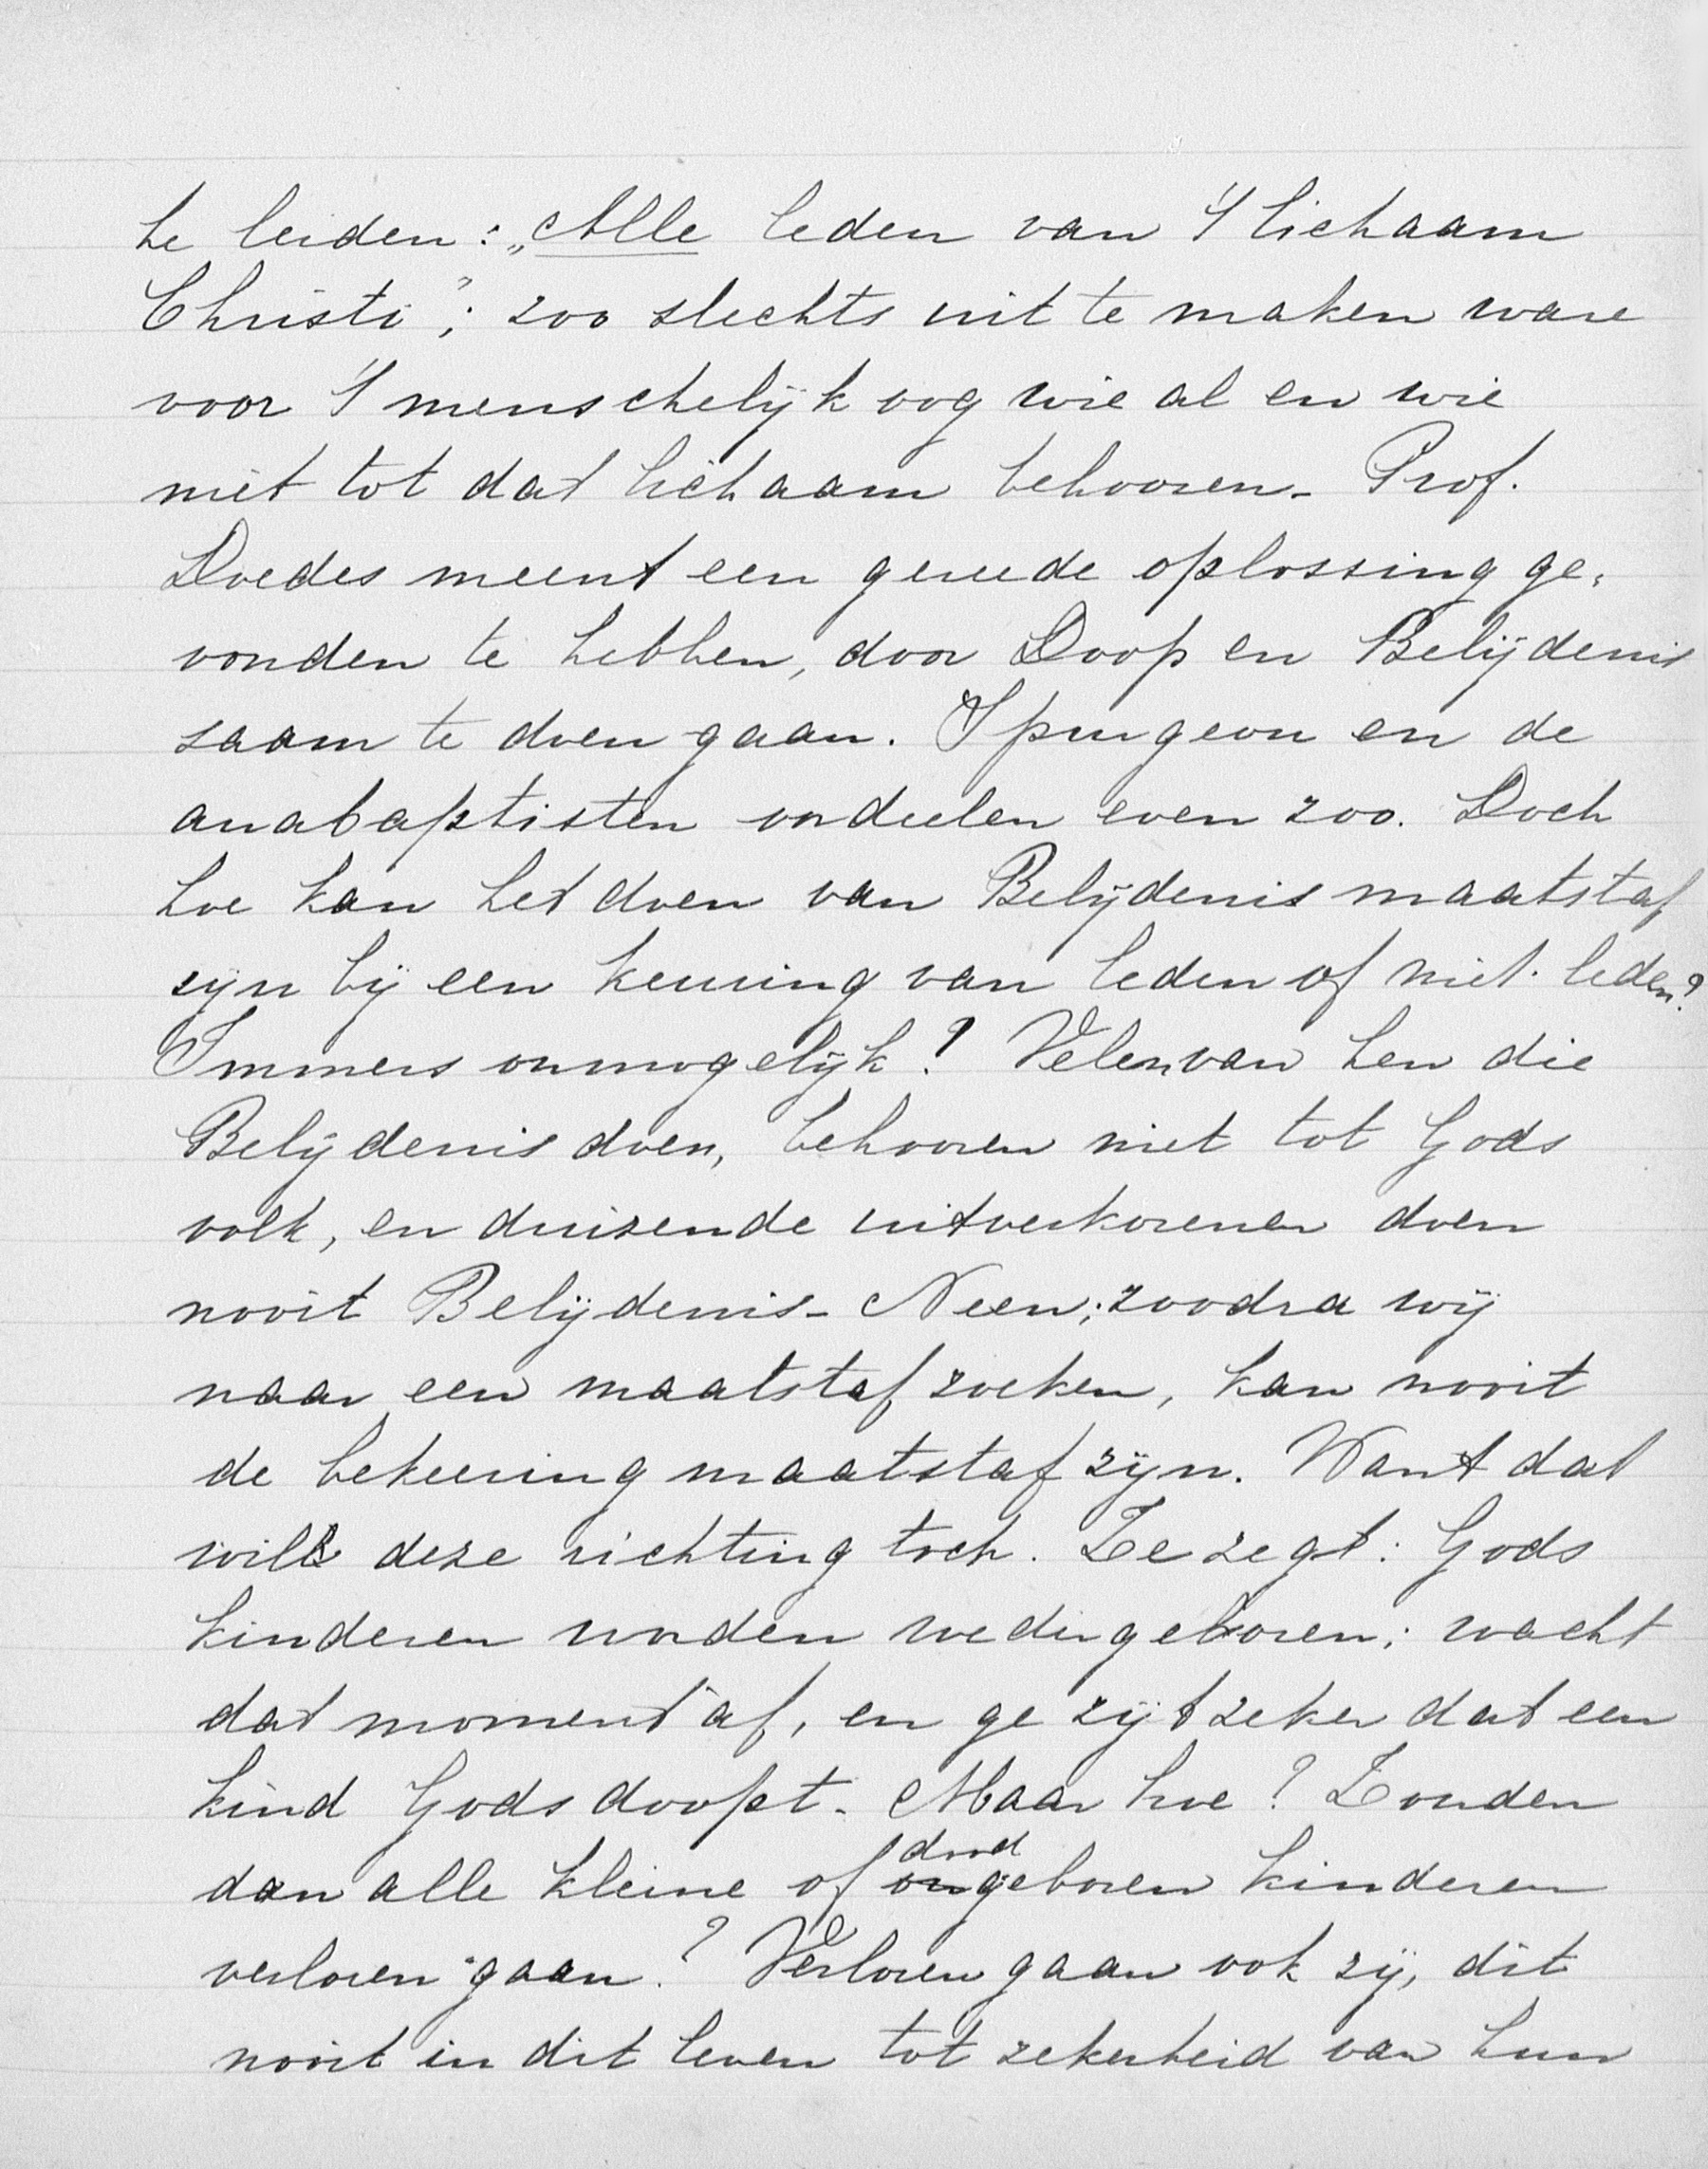 te leiden: „Alle leden van 't lichaam
Christi”; zoo slechts uit te maken ware
voor 't menschelijk oog wie al en wie
niet tot dat lichaam behooren. Prof.
Doedes meent een gereede oplossing ge-
vonden te hebben, door Doop en Belijdenis
saam te doen gaan. Spurgeon en de
anabaptisten oordeelen even zoo. Doch
hoe kan het doen van Belijdenis maatstaf
zijn bij een keuring van leden of niet-leden?
Immers onmogelijk? Velen van hen die
Belijdenis doen, behooren niet tot Gods
volk, en duizende uitverkorenen doen
nooit Belijdenis. Neen; zoodra wij
naar een maatstaf zoeken, kan nooit
de bekeering maatstaf zijn. Want dat
wil deze richting toch. Ze zegt: Gods
kinderen worden wedergeboren; wacht
dat moment af, en ge zijt zeker dat een
kind Gods doopt. Maar hoe? Zouden
dood
dan alle kleine of ongeboren kinderen
verloren gaan? Verloren gaan ook zij, dit
nooit in dit leven tot zekerheid van hun